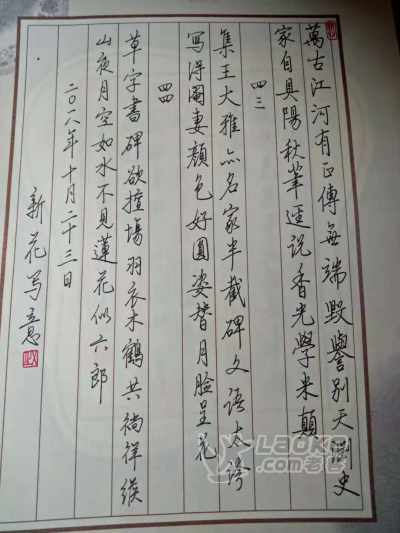 萬古江河有正傳無端毀譽別天淵史
家自具陽秋筆逕說香光學米顛
四三
集王大雅亦名家半截碑文語太誇
寫得閽妻顏色好圓姿替月臉呈花
四四
草字書碑欲擅場羽衣木鶴共徜徉緱
山夜月空如水不見蓮花似六郎
二〇一八年十月二十三日
新花写意